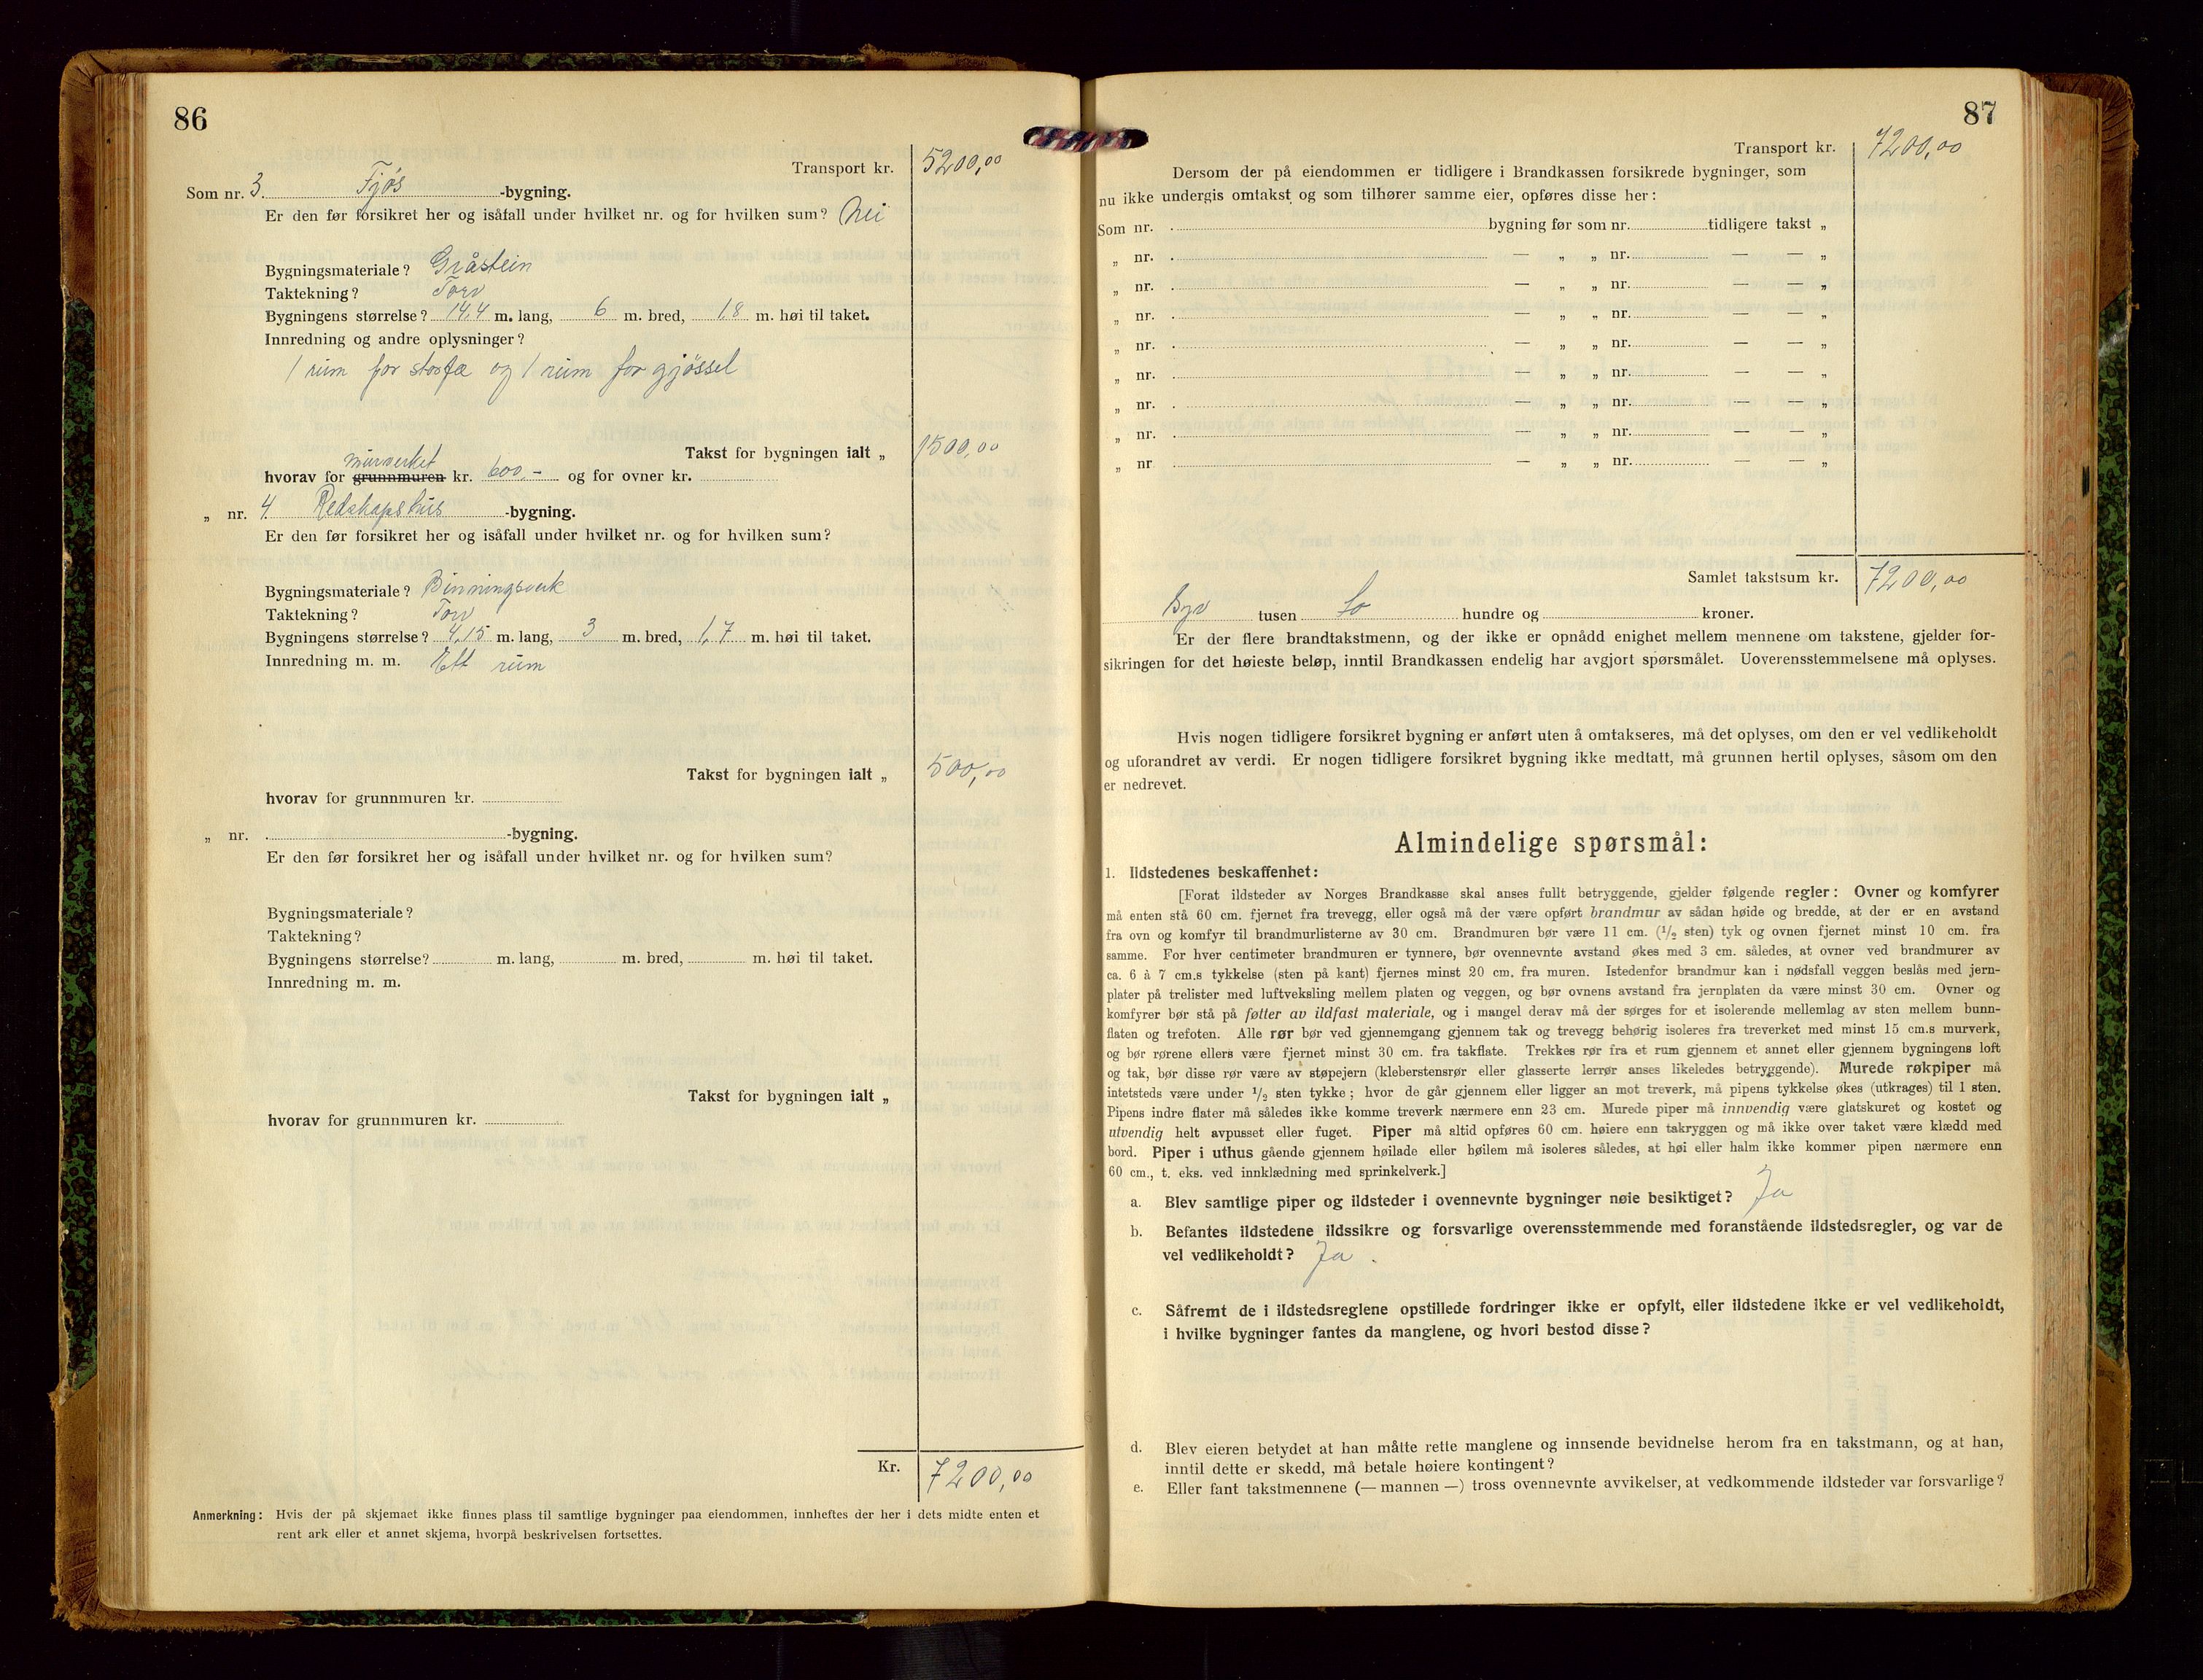 86
Transport kr. 5200,00
Som nr. 3. Fjøs -bygning.
Er den før forsikret her og isåfall under hvilket nr. og for hvilken sum? Nei
Bygningsmateriale? Gråstein
Taktekning? Torv
Bygningens størrelse? 14,4 m. lang, 6 m. bred, 1,8 m. høi til taket.
Innredning og andre oplysninger?
1 rum for storfæ og 1 rum for gjössel
Takst for bygningen ialt „ 1500,00
murverket
hvorav for grunnmuren kr. 600,- og for ovner kr.
„ nr. 4. Redskapshus -bygning.
Er den før forsikret her og isåfall under hvilket nr. og for hvilken sum?
Bygningsmateriale? Binningsverk
Taktekning? Torv
Bygningens størrelse? 4,15 m. lang, 3 m. bred, 1,7 m. høi til taket.
Innredning m. m. Ett rum
Takst for bygningen ialt „ 500,00
hvorav for grunnmuren kr.
„ nr. -bygning.
Er den før forsikret her og isåfall under hvilket nr. og for hvilken sum?
Bygningsmateriale?
Taktekning?
Bygningens størrelse? m. lang, m. bred, m. høi til taket.
Innredning m. m.
Takst for bygningen ialt „
hvorav for grunnmuren kr.
Kr. 7200,00
Anmerkning: Hvis der på skjemaet ikke finnes plass til samtlige bygninger paa eiendommen, innheftes der her i dets midte enten et
rent ark eller et annet skjema, hvorpå beskrivelsen fortsettes.
87
Transport kr. 7200,00
Dersom der på eiendommen er tidligere i Brandkassen forsikrede bygninger, som
nu ikke undergis omtakst og som tilhører samme eier, opføres disse her:
Som nr. bygning før som nr. tidligere takst „
„ nr. — „ „ nr. — — „
„ nr. — „ „ nr. — — „
„ nr. — „ „ nr. — — „
„ nr. — „ „ nr. — — „
„ nr. — „ „ nr. — — „
„ nr. — „ „ nr. — — „
„ nr. — „ „ nr. — — „
„ nr — „ „ nr. — — „
Samlet takstsum kr. 7200,00
Syv tusen to hundre og kroner.
Er der flere brandtakstmenn, og der ikke er opnådd enighet mellem mennene om takstene, gjelder for-
sikringen for det høieste beløp, inntil Brandkassen endelig har avgjort spørsmålet. Uoverensstemmelsene må oplyses.
Hvis nogen tidligere forsikret bygning er anført uten å omtakseres, må det oplyses, om den er vel vedlikeholdt
og uforandret av verdi. Er nogen tidligere forsikret bygning ikke medtatt, må grunnen hertil oplyses, såsom om den
er nedrevet.
Almindelige spørsmål:
1. Ildstedenes beskaffenhet:
[Forat ildsteder av Norges Brandkasse skal anses fullt betryggende, gjelder følgende regler: Ovner og komfyrer
må enten stå 60 cm. fjernet fra trevegg, eller også må der være opført brandmur av sådan høide og bredde, at der er en avstand
fra ovn og komfyr til brandmurlisterne av 30 cm. Brandmuren bør være 11 cm. (1/2 sten) tyk og ovnen fjernet minst 10 cm. fra
samme. For hver centimeter brandmuren er tynnere, bør ovennevnte avstand økes med 3 cm. således, at ovner ved brandmurer av
ca. 6 à 7 cm.s tykkelse (sten på kant) fjernes minst 20 cm. fra muren. Istedenfor brandmur kan i nødsfall veggen beslås med jern-
plater på trelister med luftveksling mellem platen og veggen, og bør ovnens avstand fra jernplaten da være minst 30 cm. Ovner og
komfyrer bør stå på føtter av ildfast materiale, og i mangel derav må der sørges for et isolerende mellemlag av sten mellem bunn-
flaten og trefoten. Alle rør bør ved gjennemgang gjennem tak og trevegg behørig isoleres fra treverket med minst 15 cm.s murverk,
og bør rørene ellers være fjernet minst 30 cm. fra takflate. Trekkes rør fra et rum gjennem et annet eller gjennem bygningens loft
og tak, bør disse rør være av støpejern (kleberstensrør eller glasserte lerrør anses likeledes betryggende). Murede røkpiper må
intetsteds være under 1/2 sten tykke; hvor de går gjennem eller ligger an mot treverk, må pipens tykkelse økes (utkrages) til 1 sten.
Pipens indre flater må således ikke komme treverk nærmere enn 23 cm. Murede piper må innvendig være glatskuret og kostet og
utvendig helt avpusset eller fuget. Piper må altid opføres 60 cm. høiere enn takryggen og må ikke over taket være klædd med
bord. Piper i uthus gående gjennem høilade eller høilem må isoleres således, at høi eller halm ikke kommer pipen nærmere enn
60 cm., t. eks. ved innklædning med sprinkelverk.]
a. Blev samtlige piper og ildsteder i ovennevnte bygninger nøie besiktiget? Ja
b. Befantes ildstedene ildssikre og forsvarlige overensstemmende med foranstående ildstedsregler, og var de
vel vedlikeholdt? Ja.
c. Såfremt de i ildstedsreglene opstillede fordringer ikke er opfylt, eller ildstedene ikke er vel vedlikeholdt,
i hvilke bygninger fantes da manglene, og hvori bestod disse?
d. Blev eieren betydet at han måtte rette manglene og innsende bevidnelse herom fra en takstmann, og at han,
inntil dette er skedd, må betale høiere kontingent?
e. Eller fant takstmennene (— mannen —) tross ovennevnte avvikelser, at vedkommende ildsteder var forsvarlige?